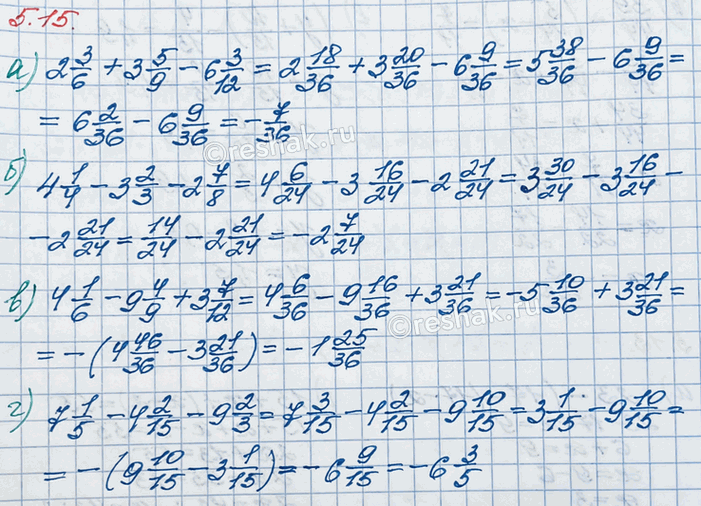 5.15.
а) 2 3/6 + 3 5/9 - 6 3/12 = 2 18/36 + 3 20/36 - 6 9/36 = 5 38/36 - 6 9/36 =
= 6 2/36 - 6 9/36 = - 7/36
б) 4 1/4 - 3 2/3 - 2 7/8 = 4 6/24 - 3 16/24 - 2 21/24 = 3 30/24 - 3 16/24 -
- 2 21/24 = 14/24 - 2 21/24 = - 2 7/24
в) 4 1/6 - 9 4/9 + 3 7/12 = 4 6/36 - 9 16/36 + 3 21/36 = - 5 10/36 + 3 21/36 =
= - (4 46/36 - 3 21/36) = - 1 25/36
г) 7 1/5 - 4 2/15 - 9 2/3 = 7 3/15 - 4 2/15 - 9 10/15 = 3 1/15 - 9 10/15 =
= - (9 10/15 - 3 1/15) = - 6 9/15 = - 6 3/5
©reshak.ru
©reshak.ru